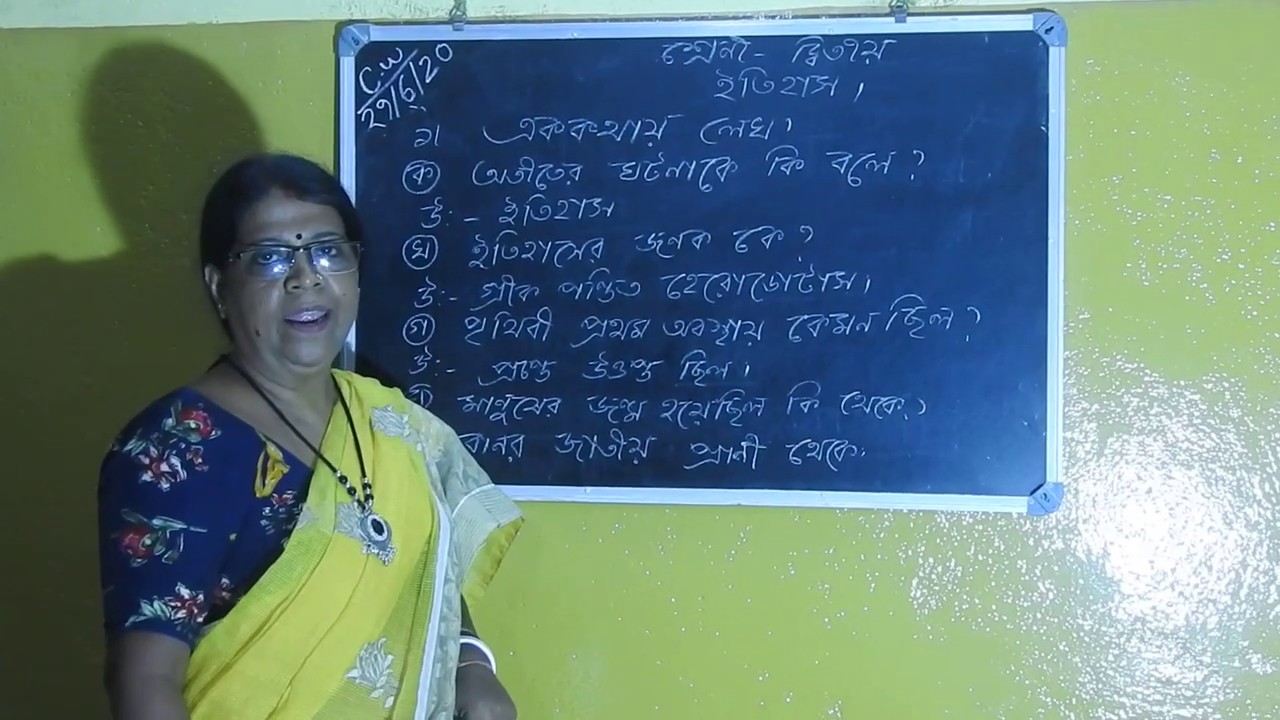 C.W
২৭/6/20
শ্রেনী - দ্বিতীয়
ইতিহাস।
১। এককথায় লেখ।
ক অতীতের ঘটনাকে কি বলে?
উঃ- ইতিহাস
খ ইতিহাসের জনক কে?
উঃ- গ্রীক পণ্ডিত হেরোডোটাস।
গ পৃথিবী প্রথম অবস্থায় কেমন ছিল?
উঃ- প্রচন্ড উত্তপ্ত ছিল।
মানুষের জন্ম হয়েছিল কি থেকে?
বানর জাতীয় প্রানী থেকে।